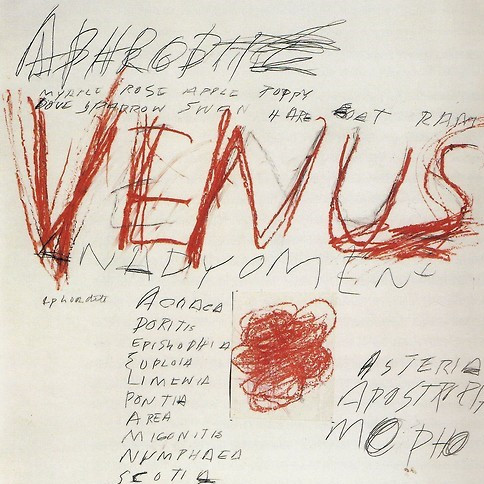 APHRODITE
MYRTLE ROSE APPLE POPPY
DOVE SPARROW SWAN HARE GOAT RAM
VENUS
ANADYOMENE
Aphrodite
ACRAEA
DORITIS
EPISTRODHIA
EUPLOIA
LIMENIA
PONTIA
AREA
MIGONITIS
NUMPHAEA
SCOTIA
ASTERIA
APOSTROPH
MOPHO